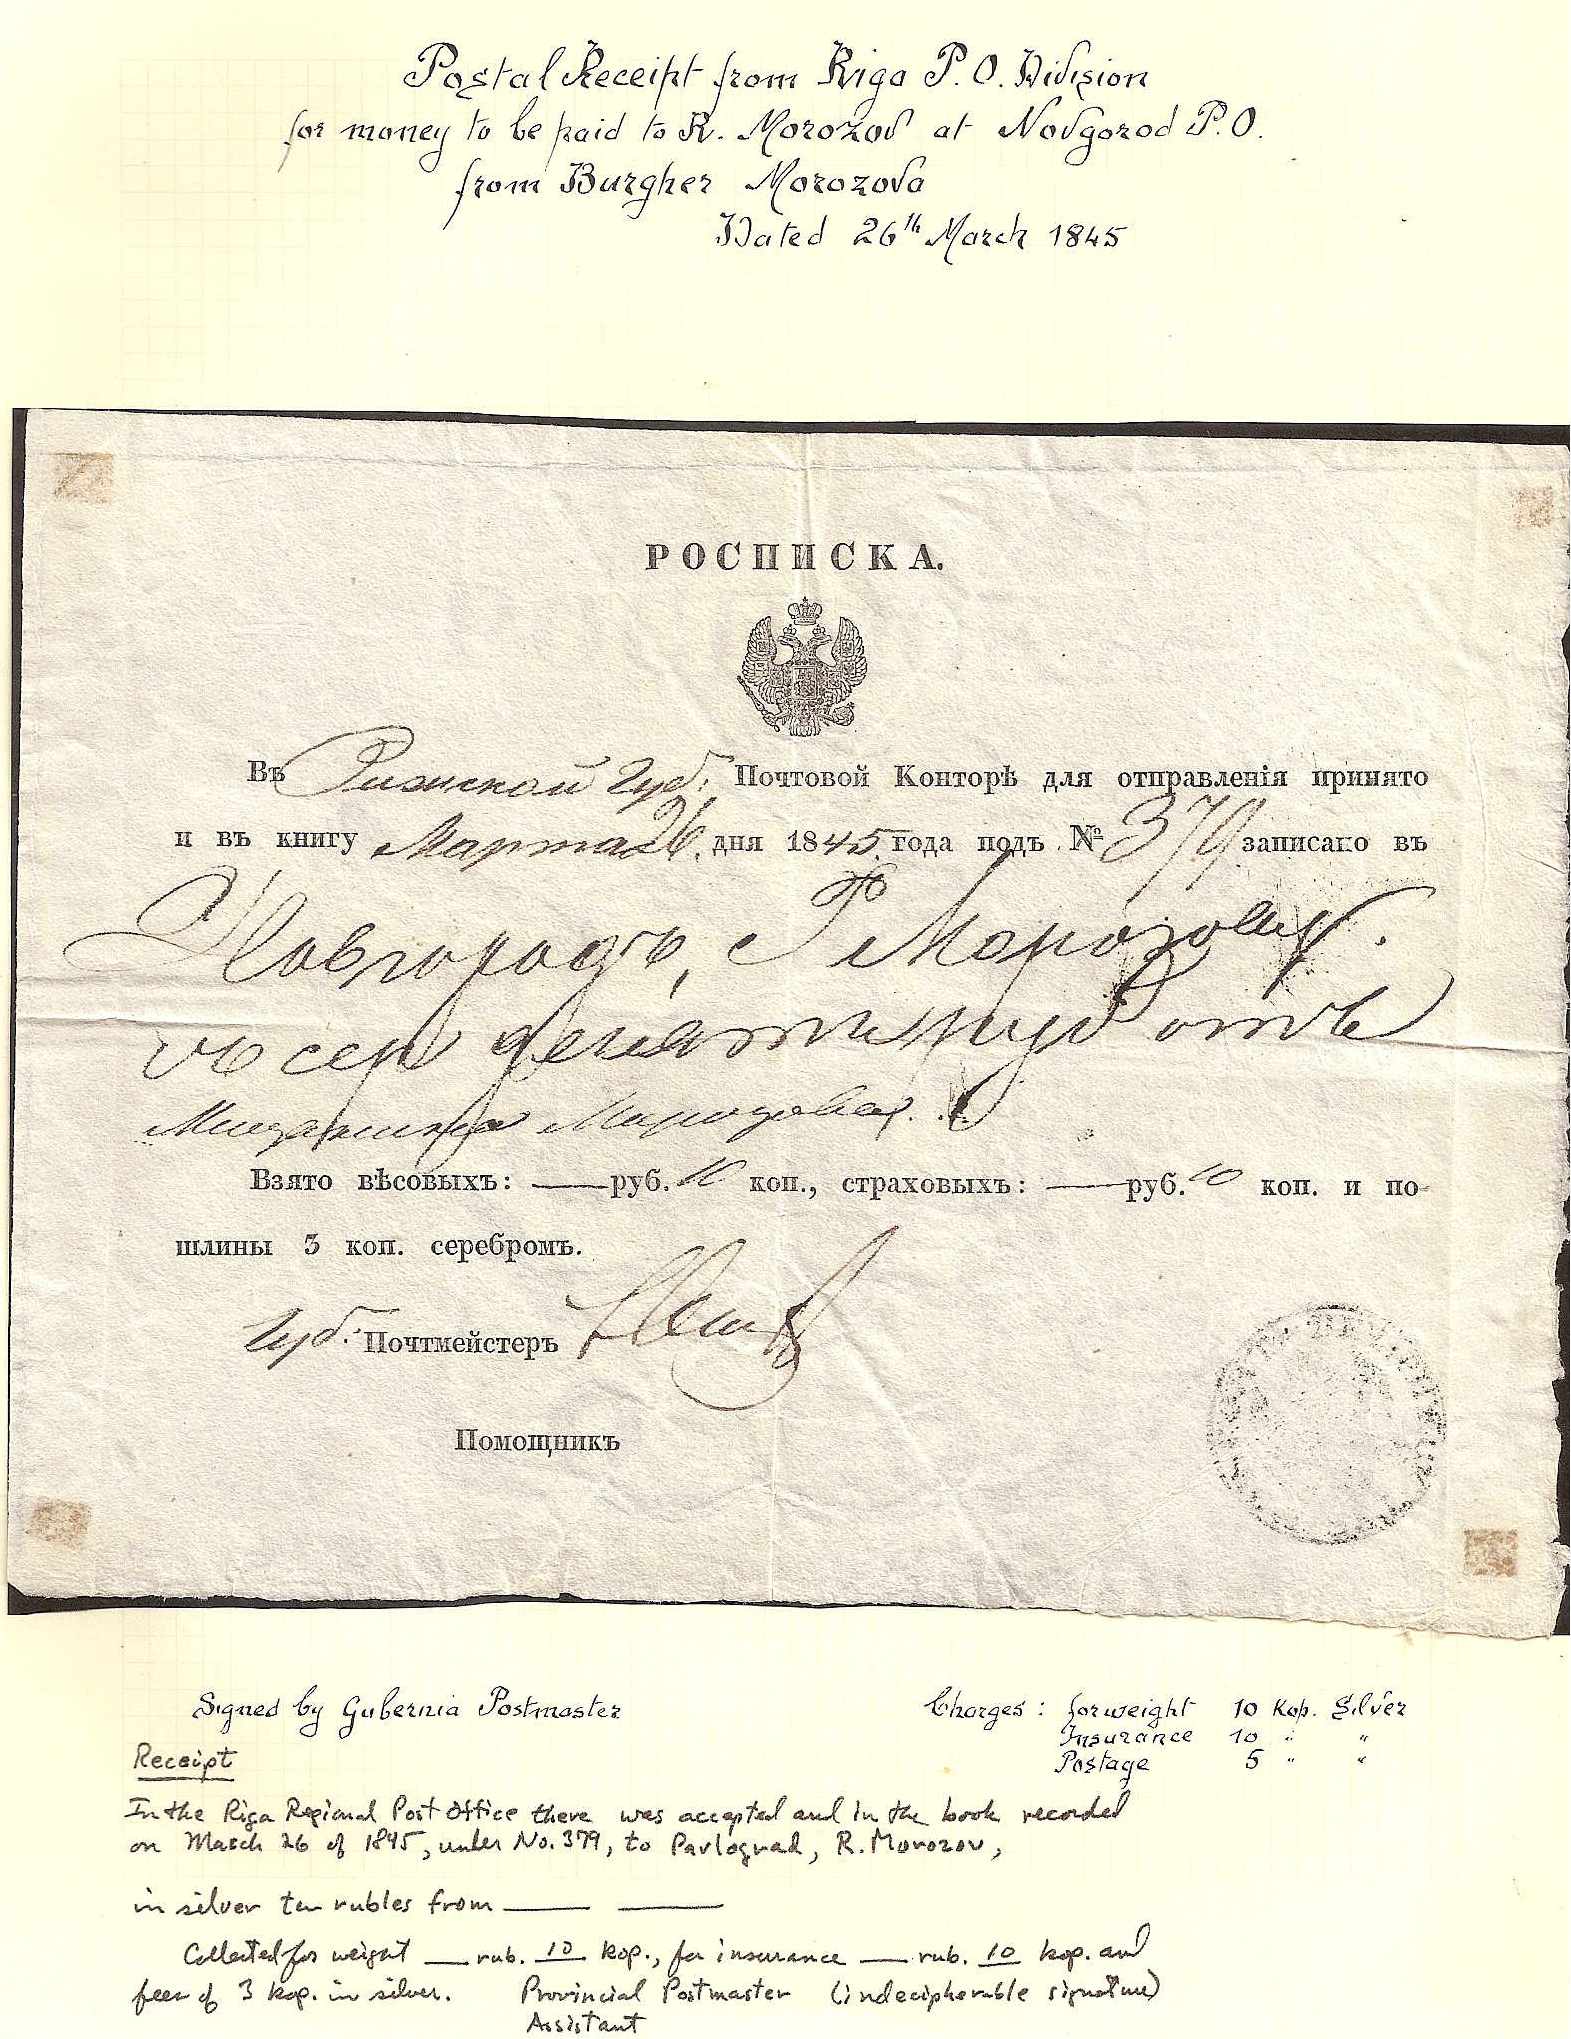 Postal Receipt from Riga P.O. Division
for money to be paid to R. Morozov at Novgorod P.O.
from Burgher Morozova
Dated 26th March 1845
РОСПИСКА.
Въ Рижской Губ: Почтовой Конторѣ для отправленія принято
и въ книгу Марта 26. дня 1845. года подъ № 379 записано въ
Новгородъ, Р Морозову.
сер руб отъ
Морозовой.
Взято вѣсовыхъ: — руб. 10 коп., страховыхъ: — руб. 10 коп. и по-
шлины 3 коп. серебромъ.
Губ: Почтмейстеръ
Помощникъ
Signed by Gubernia Postmaster
Charges: for weight 10 Kop. Silver
Insurance 10 " "
Postage 5 " "
Receipt
In the Riga Regional Post Office there was accepted and in the book recorded
on March 26 of 1845, under No. 379, to Pavlograd, R. Morozov,
in silver ten rubles from ___ ___
Collected for weight __ rub. 10 kop., for insurance __ rub. 10 kop. and
fees of 3 kop. in silver. Provincial Postmaster (indecipherable signature)
Assistant